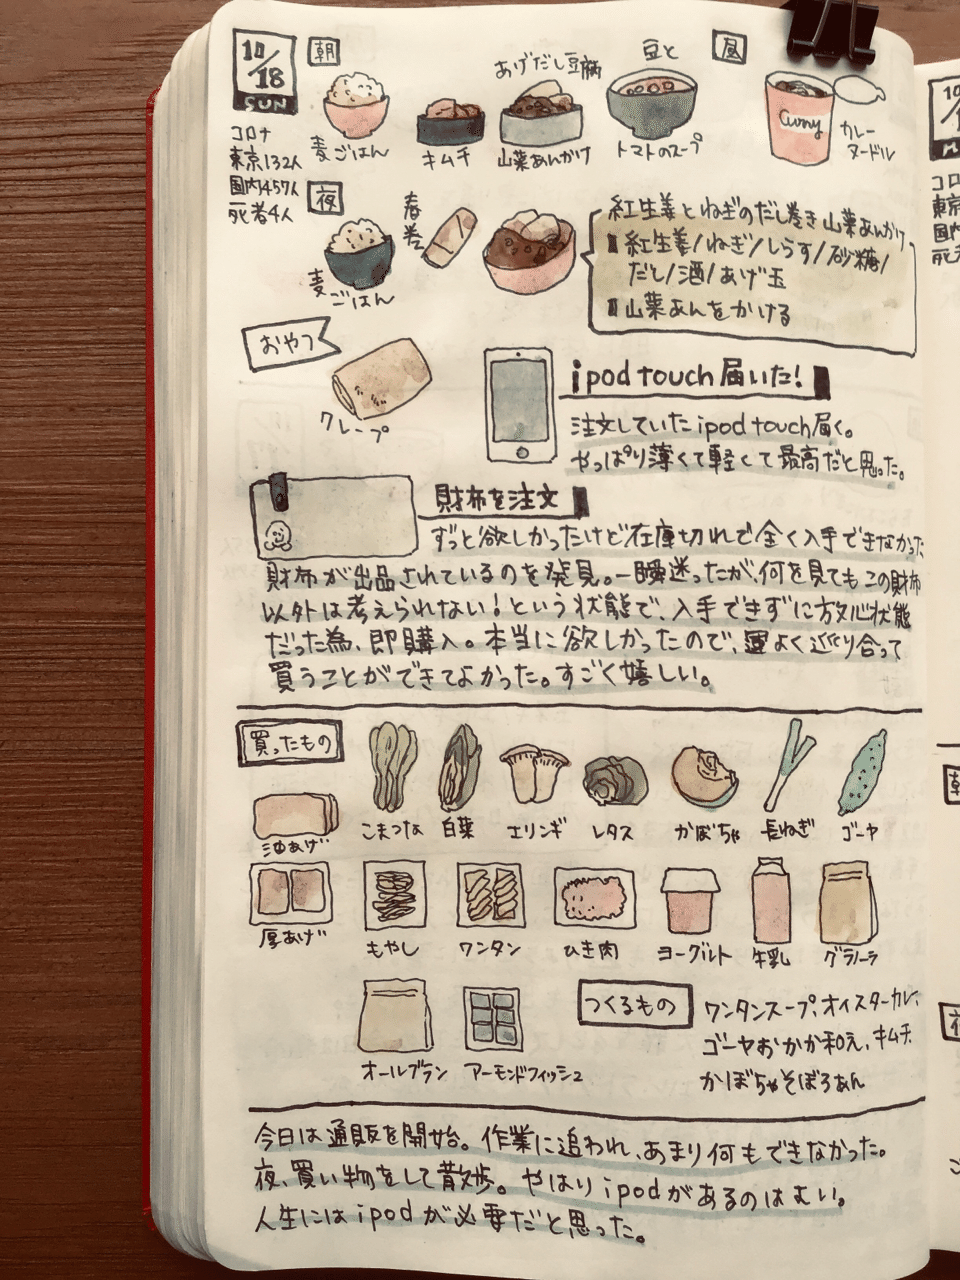 10/18
SUN
コロナ
東京132人
国内457人
死者4人
朝
麦ごはん
キムチ
あげだし豆腐
山菜あんかけ
豆と
トマトのスープ
昼
Curry
カレー
ヌードル
夜
麦ごはん
春巻
紅生姜とねぎのだし巻き山菜あんかけ
紅生姜/ねぎ/しらす/砂糖/
だし/酒/あげ玉
山菜あんをかける
おやつ
クレープ
ipod touch届いた!
注文していたipod touch届く。
やっぱり薄くて軽くて最高だと思った。
財布を注文
ずっと欲しかったけど在庫切れで全く入手できなかった
財布が出品されているのを発見。一瞬迷ったが、何を見てもこの財布
以外は考えられない!という状態で、入手できずに放心状態
だった為、即購入。本当に欲しかったので、運よく巡り合って
買うことができてよかった。すごく嬉しい。
買ったもの
油あげ
こまつな
白菜
エリンギ
レタス
かぼちゃ
長ねぎ
ゴーヤ
厚あげ
もやし
ワンタン
ひき肉
ヨーグルト
牛乳
グラノーラ
オールブラン
アーモンドフィッシュ
つくるもの
ワンタンスープ、オイスターカレー、
ゴーヤおかか和え、キムチ
かぼちゃそぼろあん
今日は通販を開始。作業に追われ、あまり何もできなかった。
夜、買い物をして散歩。やはりipodがあるのはよい。
人生にはipodが必要だと思った。
10
コロ
東京
国内
死者
朝
夜